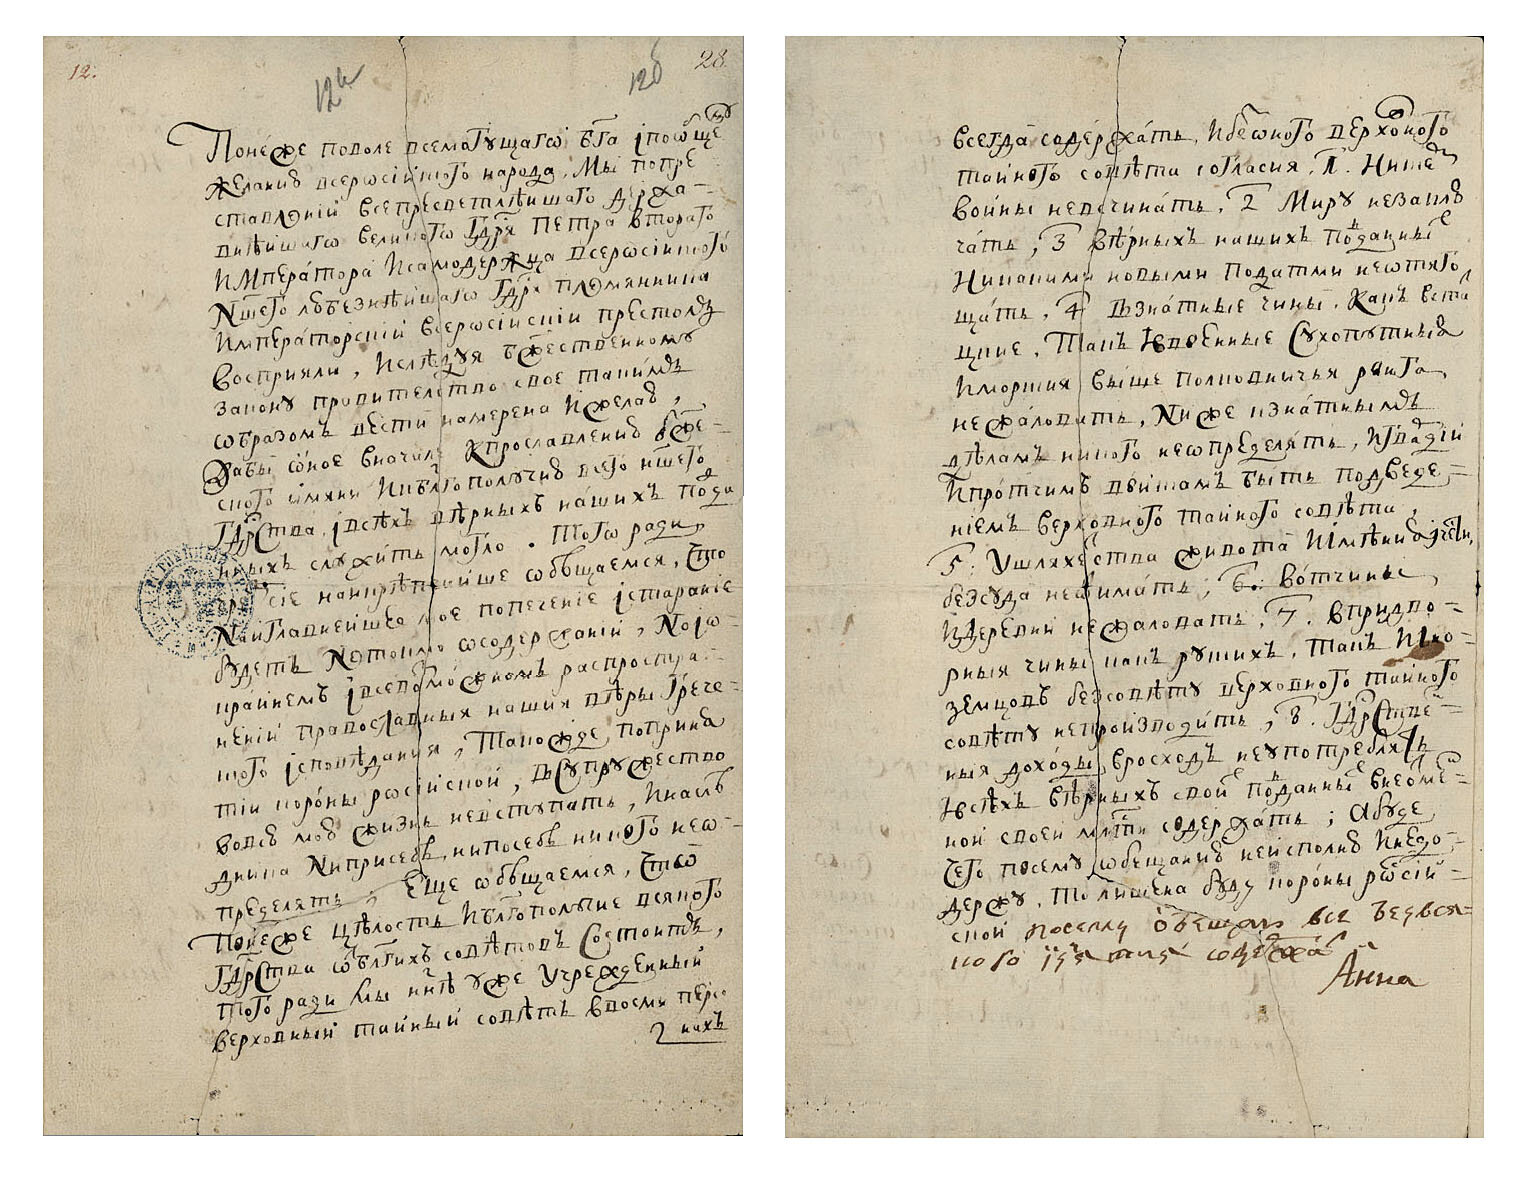 12.
12а
12б
28
Понеже поволе всемогущаго бга і пообще
желанию всеросіискаго народа, Мы попре
ставленій всепресветлѣишаго держа-
внѣишаго великаго гдря Петра втораго
Императора и самодержца всеросіискаго
Ншего любезнѣишаго гдря племянника
императорскій всеросіискій престолъ
восприяли, и слѣдуя бжественному
закону правителство свое такимъ
образомъ вести намерена и желаю,
дабы оное вначале к прославлению бже-
ского имяни и к блгополучию всего ншего
гдрства, і всѣхъ вѣрныхъ нашихъ подда
нныхъ служить могло. Того ради,
чрезъ сіе наикрѣпчайше обѣщаемся, что
наиглавнейшее мое попечение і старание
будетъ не токмо о содержаніи, но і о
крайнемъ і всевозможномъ распростра-
неніи православныя нашия вѣры грече-
ского ісповѣдания, такожде, по приня
тіи короны росіиской, в супружество
во всю мою жизнь не вступать, и наслѣ-
дника ни при себѣ, ни по себѣ никого не о-
пределять. Еще обѣщаемся, что
понеже цѣлость и блгополучие всякого
гдрства от блгихъ совѣтовъ состоитъ,
того ради мы ннѣ уже учрежденный
верховный тайный совѣтъ в восми персо
нахъ
всегда содержать, и без оного верховного
тайного совѣта согласия, 1. Ни с кемъ
войны не всчинать, 2 Миру не заклю
чать, 3 вѣрныхъ нашихъ подданныхъ
никакими новыми податми не отяго
щать, 4 в знатные чины, какъ в ста
цкие, такъ и в военные сухопутныя
и морския выще полковничья ранга
не жаловать, ниже к знатнымъ
дѣламъ никого не определять, и гвардіи
и протчимъ войскамъ быть под веде-
ніемъ верховного тайного совѣта,
5: у шляхетства живота и імѣния і чести,
без суда не отимать, 6: вотчины,
и деревни не жаловать, 7. в придво-
рныя чины какъ рускихъ, такъ и ино-
земцовъ без совѣту верховного тайного
совѣту не производить, 8. гдрствен-
ныя доходы в росходъ не употреблять
и всѣхъ вѣрныхъ своихъ подданныхъ в неотмен-
ной своей млсти содержать; А буде
чего по сему обещанию не исполню и не до-
держу, то лишена буду короны росіи-
ской по сему обещаю все безъ вся-
кого ізятия содержать
Анна